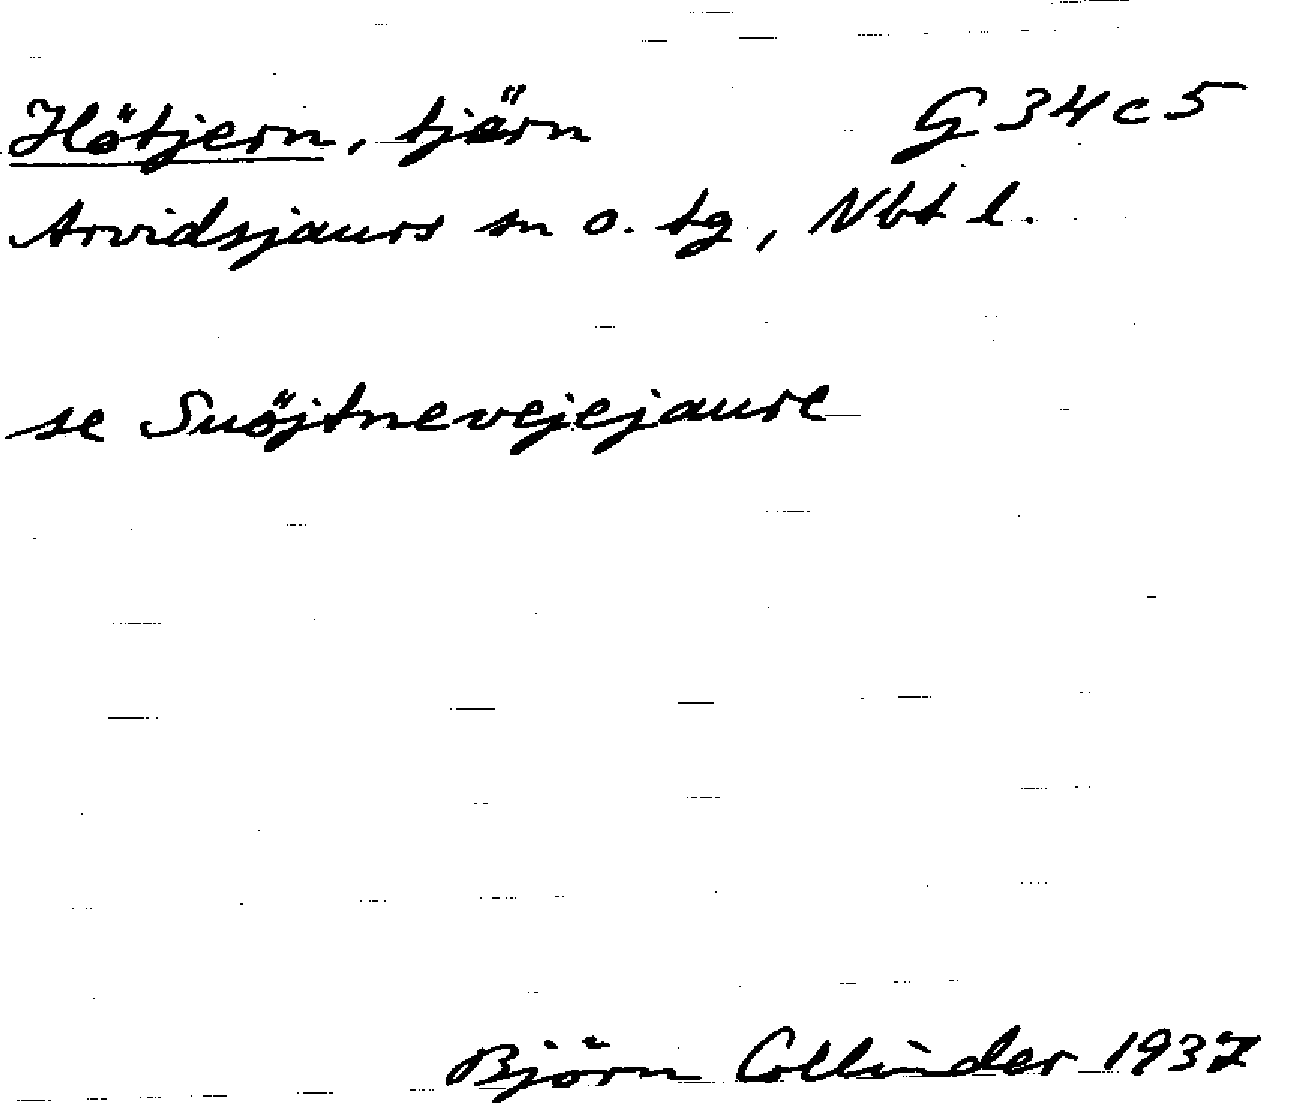 Hötjern, tjärn G 34 c 5
Arvidsjaurs sn o. tg, Nbt l.
se Suöjtnevejejaure
Björn Collinder 1937